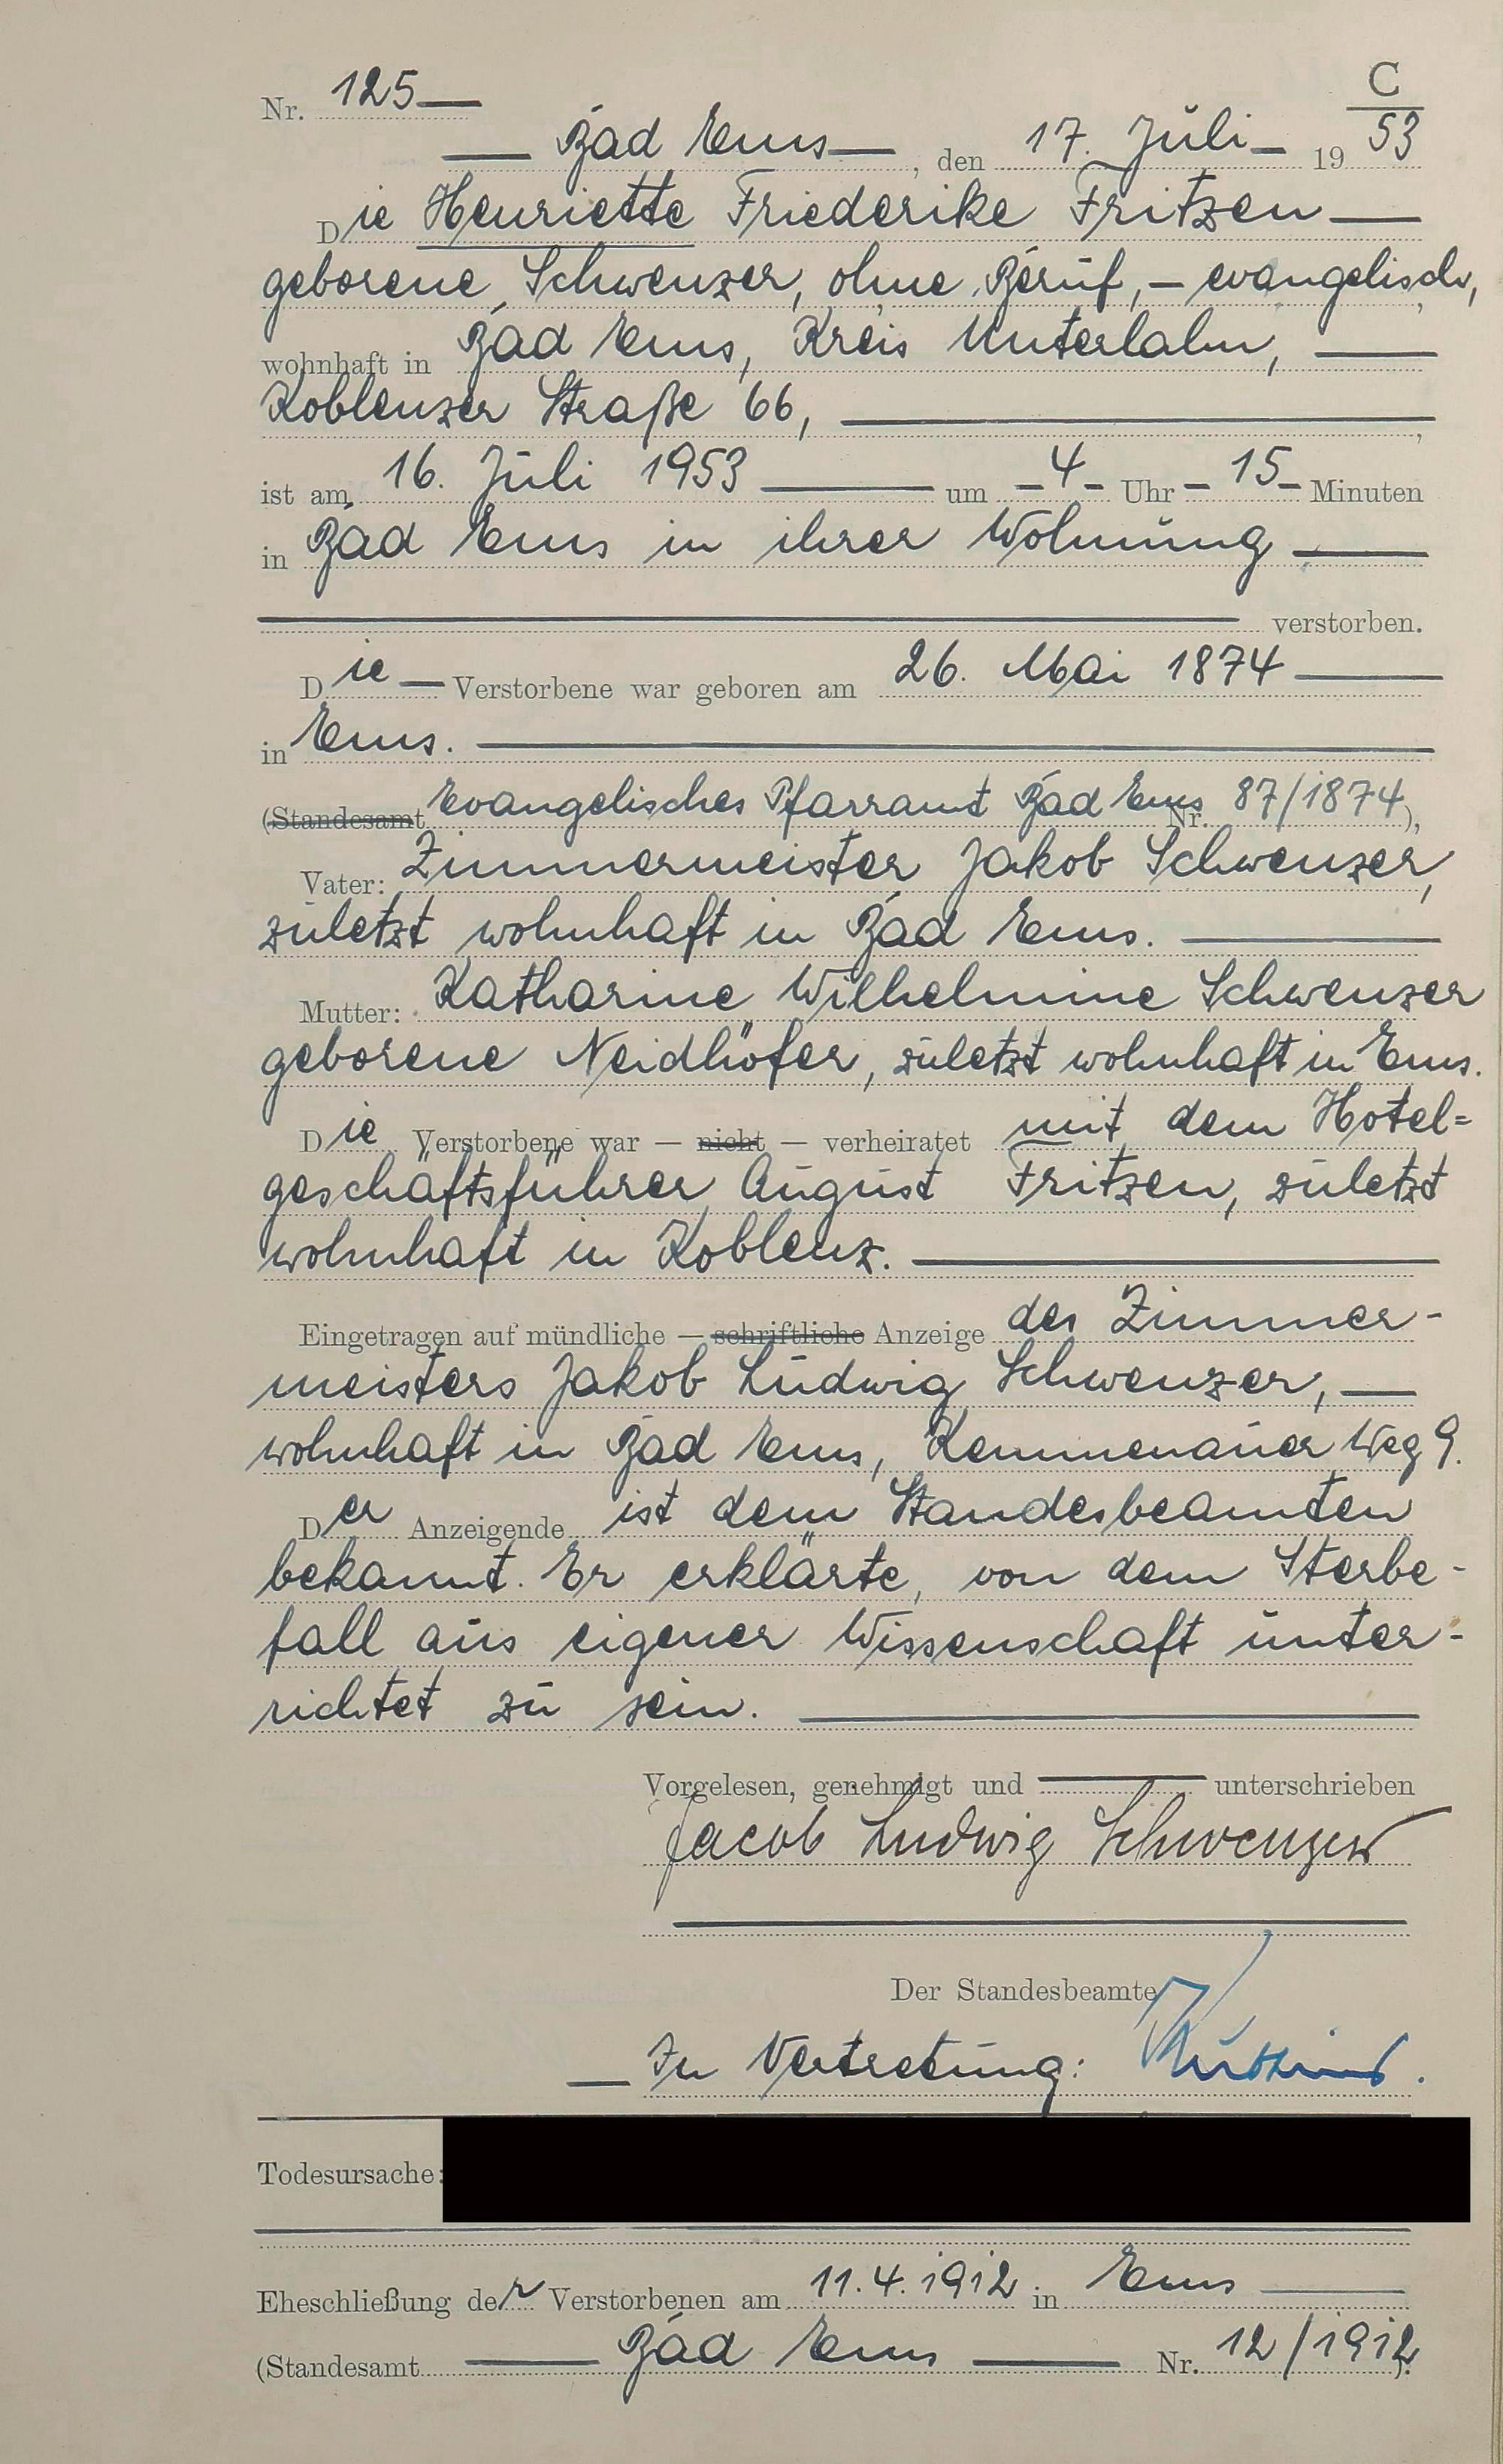 C
Nr. 125
Bad Ems, den 17. Juli 1953
Die Henriette Friederike Fritzen
geborene Schwenzer, ohne Beruf, – evangelisch,
wohnhaft in Bad Ems, Kreis Unterlahn,
Koblenzer Straße 66,
ist am 16. Juli 1953 um 4 Uhr 15 Minuten
in Bad Ems in ihrer Wohnung
verstorben.
Die Verstorbene war geboren am 26. Mai 1874
in Ems.
(Standesamt Evangelisches Pfarramt Bad Ems Nr. 87/1874),
Vater: Zimmermeister Jakob Schwenzer,
zuletzt wohnhaft in Bad Ems.
Mutter: Katharine Wilhelmine Schwenzer
geborene Neidhöfer, zuletzt wohnhaft in Ems.
Die Verstorbene war — nicht — verheiratet mit dem Hotel=
geschäftsführer August Fritzen, zuletzt
wohnhaft in Koblenz.
Eingetragen auf mündliche — schriftliche Anzeige des Zimmer-
meisters Jakob Ludwig Schwenzer,
wohnhaft in Bad Ems, Kemmenauer Weg 9.
Der Anzeigende ist dem Standesbeamten
bekannt. Er erklärte, von dem Sterbe-
fall aus eigener Wissenschaft unter-
richtet zu sein.
Vorgelesen, genehmigt und unterschrieben
Jacob Ludwig Schwenzer
Der Standesbeamte
In Vertretung:
Todesursache:
Eheschließung der Verstorbenen am 11.4.1912 in Ems
(Standesamt Bad Ems Nr. 12/1912).